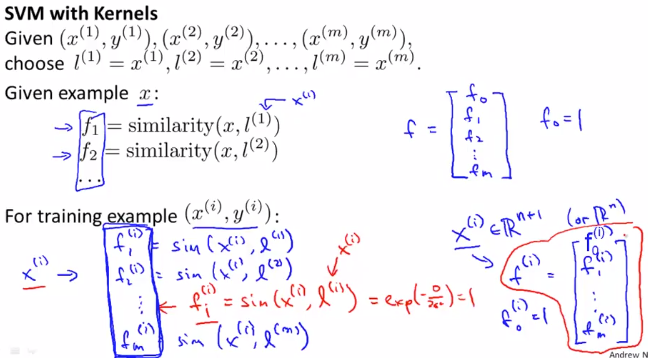 SVM with Kernels
Given (x^{(1)}, y^{(1)}), (x^{(2)}, y^{(2)}), …, (x^{(m)}, y^{(m)}),
choose l^{(1)} = x^{(1)}, l^{(2)} = x^{(2)}, …, l^{(m)} = x^{(m)}.
Given example x:
x^{(i)}
→ f_1 = similarity(x, l^{(1)})
→ f_2 = similarity(x, l^{(2)})
…
f = [f_0 f_1 f_2 ⋮ f_m]
f_0 = 1
For training example (x^{(i)}, y^{(i)}):
x^{(i)} →
f_1^{(i)} = sim(x^{(i)}, l^{(1)})
f_2^{(i)} = sim(x^{(i)}, l^{(2)})
x^{(i)}
⋮ ← f_i^{(i)} = sim(x^{(i)}, l^{(i)}) = exp(-0/2σ²) = 1
f_m^{(i)} = sim(x^{(i)}, l^{(m)})
x^{(i)} ∈ ℝ^{n+1} (or ℝ^n)
→ f^{(i)} = [f_0^{(i)} f_1^{(i)} ⋮ f_m^{(i)}]
f_0^{(i)} = 1
Andrew N